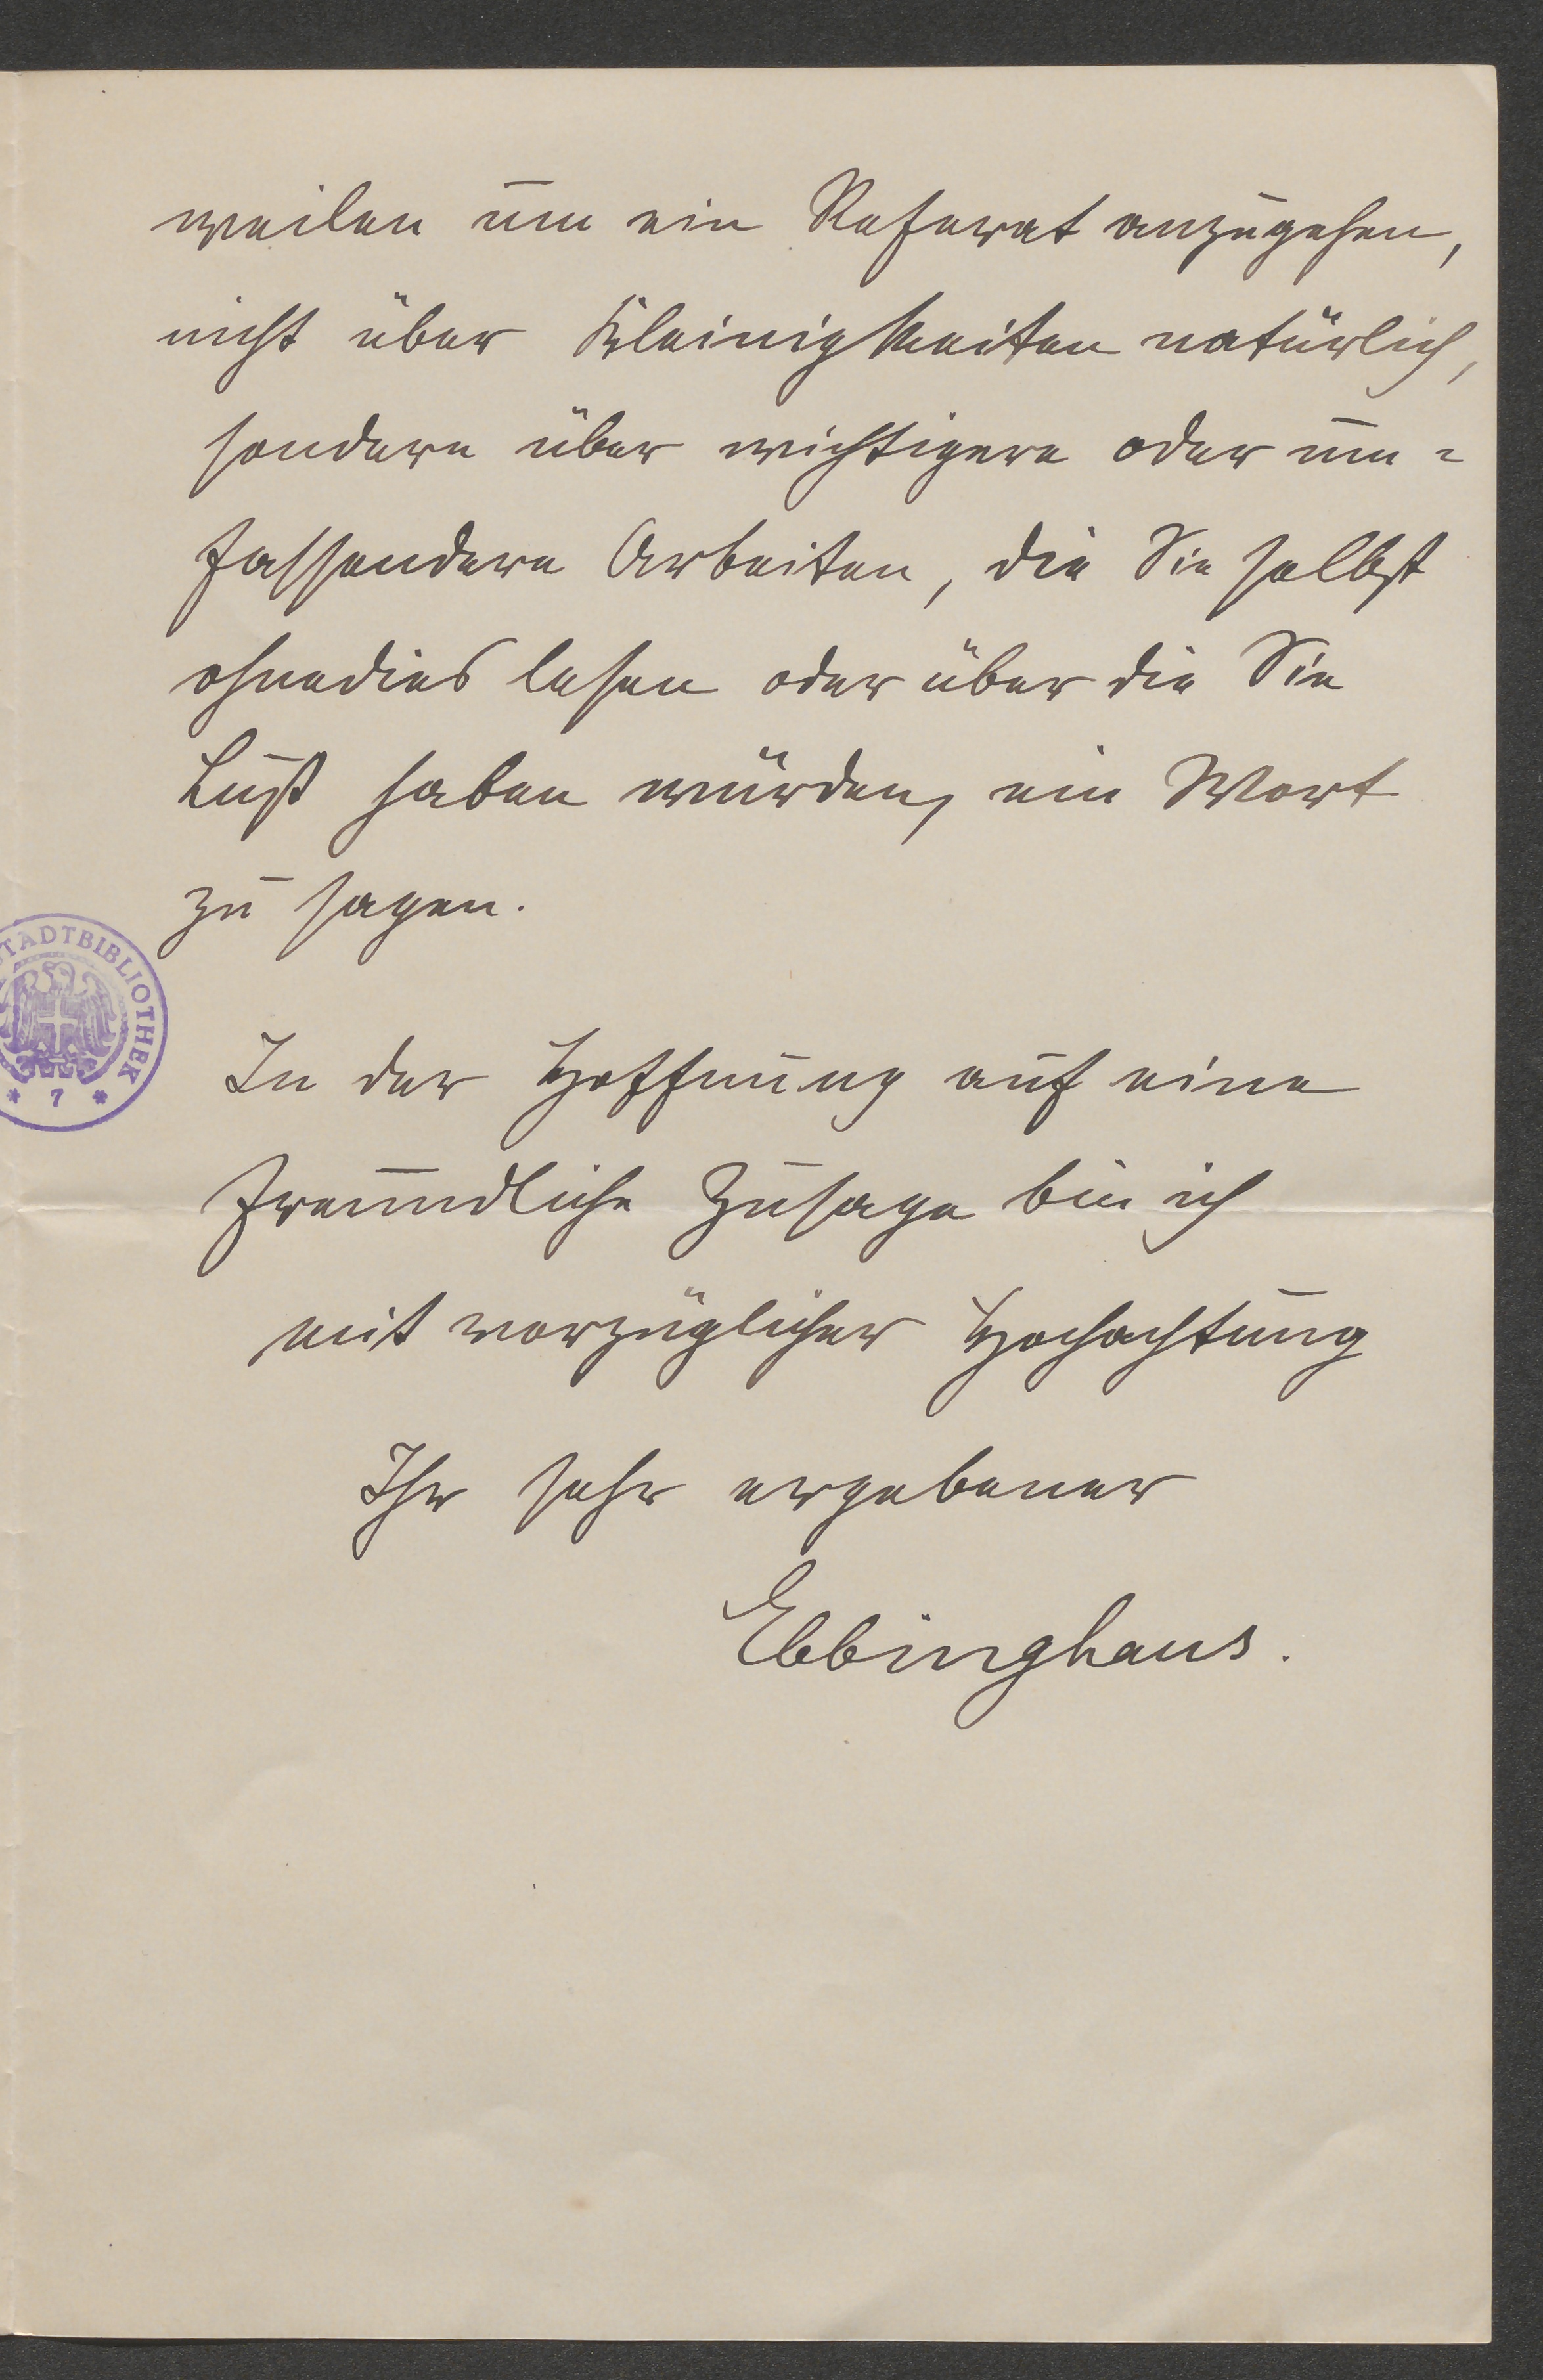 weilen um ein Referat anzugehen,
nicht über Kleinigkeiten natürlich,
sondern über wichtigere oder um-
fassendere Arbeiten, die Sie selbst
ohnedies lesen oder über die Sie
Lust haben würden, ein Wort
zu sagen.
STADTBIBLIOTHEK
* 7 *
In der Hoffnung auf eine
freundliche Zusage bin ich
mit vorzüglicher Hochachtung
Ihr sehr ergebener
Ebbinghaus.